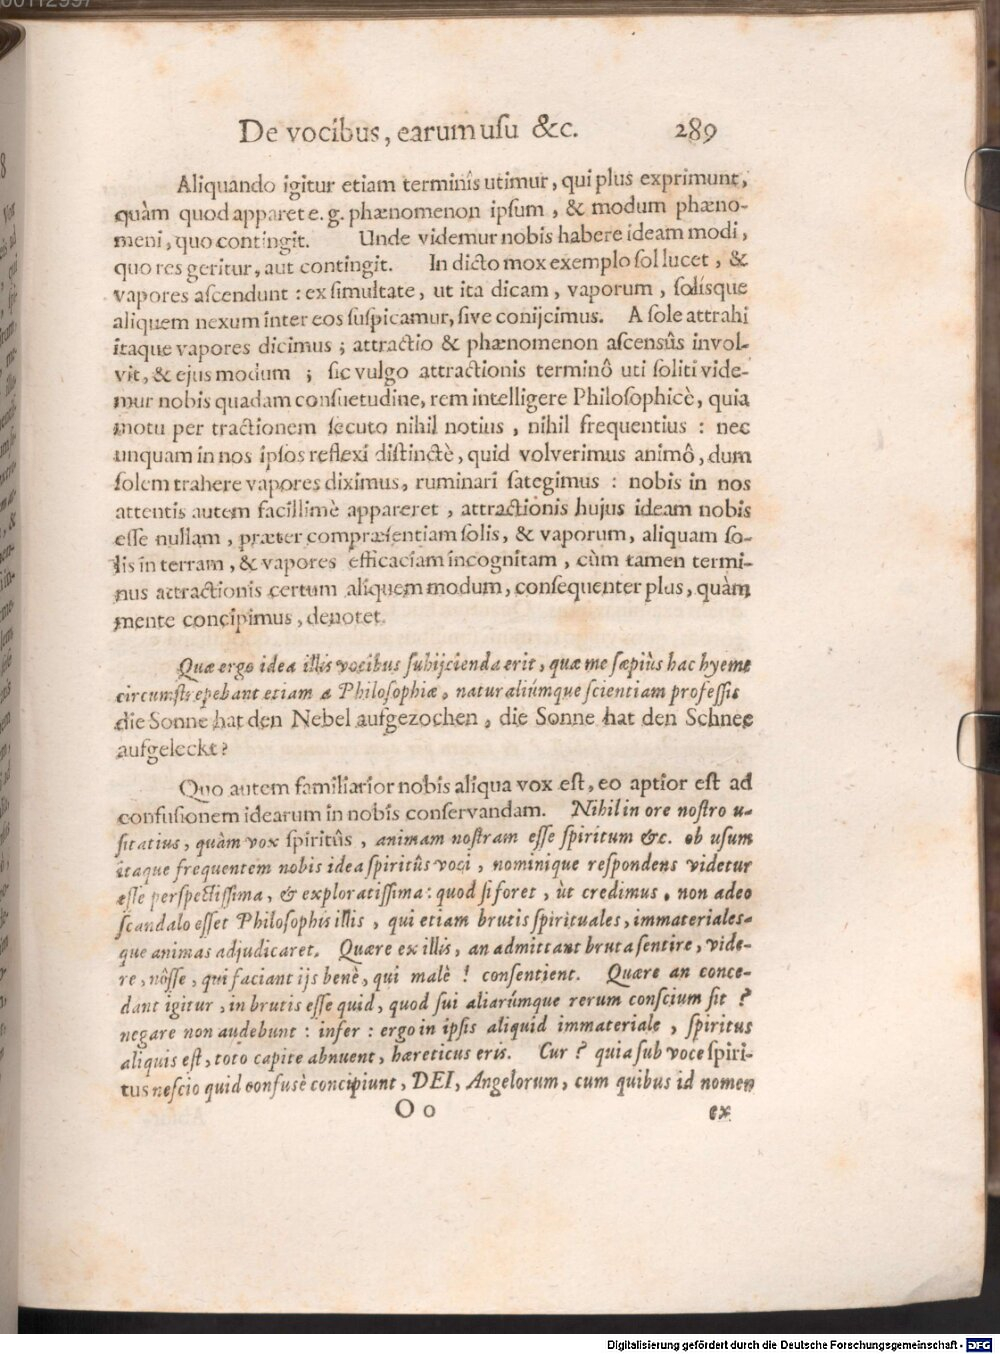 De vocibus, earum usu &c. 289
Aliquando igitur etiam terminis utimur, qui plus exprimunt,
quàm quod apparet e. g. phænomenon ipsum, & modum phæno-
meni, quo contingit. Unde videmur nobis habere ideam modi,
quo res geritur, aut contingit. In dicto mox exemplo sol lucet, &
vapores ascendunt: ex simultate, ut ita dicam, vaporum, solisque
aliquem nexum inter eos suspicamur, sive conijcimus. A sole attrahi
itaque vapores dicimus; attractio & phænomenon ascensûs invol-
vit, & ejus modum; sic vulgo attractionis terminô uti soliti vide-
mur nobis quadam consuetudine, rem intelligere Philosophicè, quia
motu per tractionem secuto nihil notius, nihil frequentius: nec
unquam in nos ipsos reflexi distinctè, quid volverimus animô, dum
solem trahere vapores diximus, ruminari sategimus: nobis in nos
attentis autem facillimè appareret, attractionis hujus ideam nobis
esse nullam, præter compræsentiam solis, & vaporum, aliquam so-
lis in terram, & vapores efficaciam incognitam, cùm tamen termi-
nus attractionis certum aliquem modum, consequenter plus, quàm
mente concipimus, denotet.
Quæ ergo idea illis vocibus subijcienda erit, quæ me sæpiùs hac hyeme
circumstrepebant etiam a Philosophiæ, naturaliúmque scientiam professis
die Sonne hat den Nebel aufgezochen, die Sonne hat den Schnee
aufgeleckt?
Quo autem familiarior nobis aliqua vox est, eo aptior est ad
confusionem idearum in nobis conservandam. Nihil in ore nostro u-
sitatius, quàm vox spiritûs, animam nostram esse spiritum &c. ob usum
itaque frequentem nobis idea spiritûs voci, nominique respondens videtur
esse perspectissima, & exploratissima: quod si foret, ùt credimus, non adeo
scandalo esset Philosophis illis, qui etiam brutis spirituales, immateriales-
que animas adjudicaret. Quære ex illis, an admittant bruta sentire, vide-
re, nôsse, qui faciant ijs benè, qui malè! consentient. Quære an conce-
dant igitur, in brutis esse quid, quod sui aliarúmque rerum conscium sit?
negare non audebunt: infer: ergo in ipsis aliquid immateriale, spiritus
aliquis est, toto capite abnuent, hæreticus eris. Cur? quia sub voce spiri-
tus nescio quid confusè concipiunt, DEI, Angelorum, cum quibus id nomen
O o ex
Digitalisierung gefördert durch die Deutsche Forschungsgemeinschaft - DFG